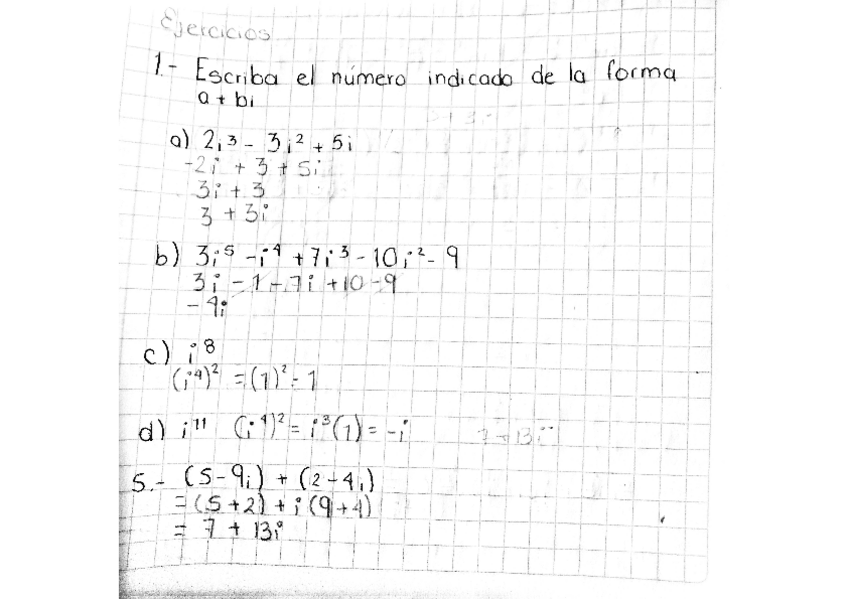 Ejercicios
1.- Escriba el número indicado de la forma
a + bi
a) 2i³ - 3i² + 5i
-2i + 3 + 5i
3i + 3
3 + 3i
b) 3i⁵ - i⁴ + 7i³ - 10i² - 9
3i - 1 - 7i + 10 - 9
- 4i
c) i⁸
(i⁴)² = (1)² = 1
d) i¹¹ (i⁴)² = i³(1) = -i
7 + 13i
5.- (5 - 9i) + (2 - 4i)
= (5 + 2) + i (9 + 4)
= 7 + 13i